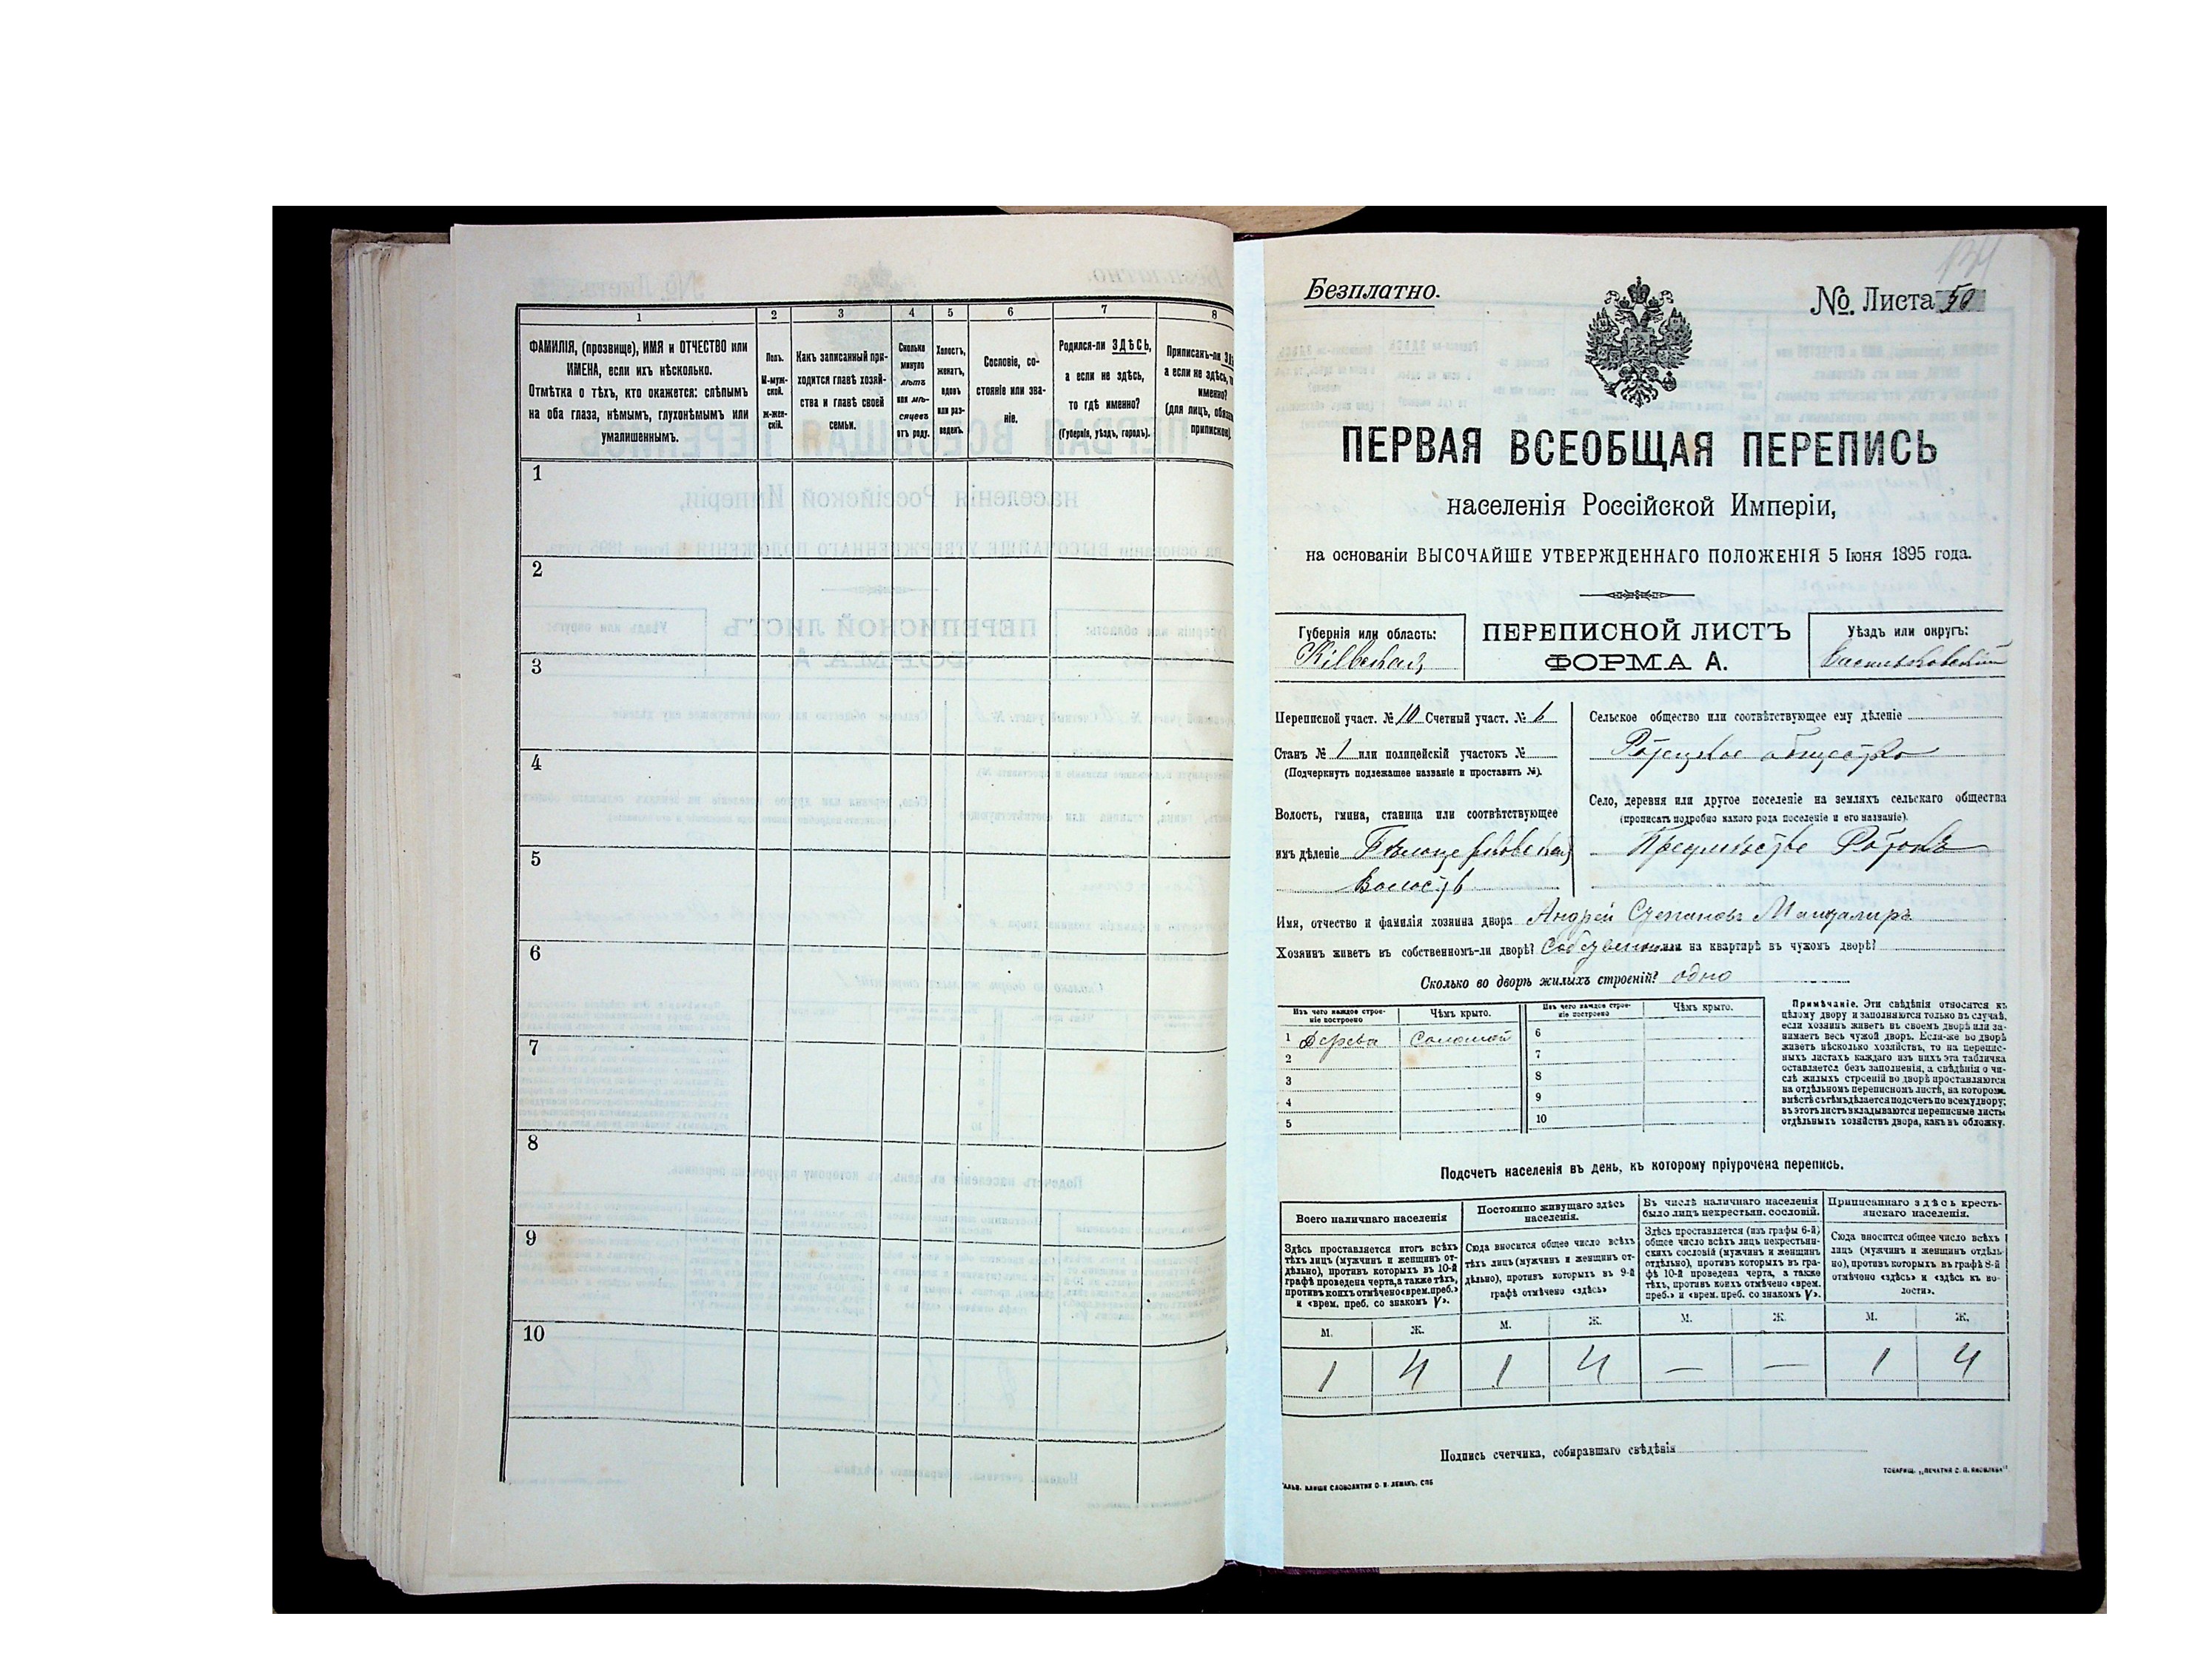 1
2
3
4
5
6
7
8
ФАМИЛІЯ, (прозвище), ИМЯ и ОТЧЕСТВО или
ИМЕНА, если ихъ нѣсколько.
Отмѣтка о тѣхъ, кто окажется: слѣпымъ
на оба глаза, нѣмымъ, глухонѣмымъ или
умалишеннымъ.
Полъ.
М-муж-
ской.
ж-жен-
скій.
Какъ записанный при-
ходится главѣ хозяй-
ства и главѣ своей
семьи.
Сколько
минуло
лѣтъ
или мѣ-
сяцевъ
отъ роду.
Холостъ,
женатъ,
вдовъ
или раз-
веденъ.
Сословіе, со-
стояніе или зва-
ніе.
Родился-ли ЗДѢСЬ,
а если не здѣсь,
то гдѣ именно?
(Губернія, уѣздъ, городъ).
Приписанъ-ли
а если не здѣсь,
именно?
(для лицъ,
1
2
3
4
5
6
7
8
9
10
Безплатно.
№. Листа 50
ПЕРВАЯ ВСЕОБЩАЯ ПЕРЕПИСЬ
населенія Россійской Имперіи,
на основаніи ВЫСОЧАЙШЕ УТВЕРЖДЕННАГО ПОЛОЖЕНІЯ 5 Іюня 1895 года.
Губернія или область:
Кіевская
ПЕРЕПИСНОЙ ЛИСТЪ
ФОРМА А.
Уѣздъ или округъ:
Васильковскій
Переписной участ. № 10 Счетный участ. № 6
Станъ № 1 или полицейскій участокъ №
(Подчеркнуть подлежащее названіе и проставить №).
Волость, гмина, станица или соотвѣтствующее
имъ дѣленіе Бѣлоцерковская
волость
Сельское общество или соотвѣтствующее ему дѣленіе
Ротоцкое общество
Село, деревня или другое поселеніе на земляхъ сельскаго общества
(прописать подробно какого рода поселеніе и его названіе).
Предмѣстье Ротокъ
Имя, отчество и фамилія хозяина двора Андрей Степановъ
Хозяинъ живетъ въ собственномъ-ли дворѣ? или на квартирѣ въ чужомъ дворѣ?
Сколько во дворѣ жилыхъ строеній? одно
Изъ чего каждое строе-
ніе построено
Чѣмъ крыто.
Изъ чего каждое строе-
ніе построено
Чѣмъ крыто.
1 дерева соломой 6
2 7
3 8
4 9
5 10
Примѣчаніе. Эти свѣдѣнія относятся къ
цѣлому двору и заполняются только въ случаѣ,
если хозяинъ живетъ въ своемъ дворѣ или за-
нимаетъ весь чужой дворъ. Если-же во дворѣ
живетъ нѣсколько хозяйствъ, то на перепис-
ныхъ листахъ каждаго изъ нихъ эта табличка
оставляется безъ заполненія, а свѣдѣнія о чи-
слѣ жилыхъ строеній во дворѣ проставляются
на отдѣльномъ переписномъ листѣ, на которомъ
вмѣстѣ съ тѣмъ дѣлается подсчетъ по всему двору;
въ этотъ листъ вкладываются переписные листы
отдѣльныхъ хозяйствъ двора, какъ въ обложку.
Подсчетъ населенія въ день, къ которому пріурочена перепись.
Всего наличнаго населенія
Постоянно живущаго здѣсь
населенія.
Въ числѣ наличнаго населенія
было лицъ некрестьян. сословій.
Приписаннаго здѣсь кресть-
янскаго населенія.
Здѣсь проставляется итогъ всѣхъ
тѣхъ лицъ (мужчинъ и женщинъ от-
дѣльно), противъ которыхъ въ 10-й
графѣ проведена черта, а также тѣхъ,
противъ коихъ отмѣчено «врем. преб.»
и «врем. преб. со знакомъ V».
Сюда вносится общее число всѣхъ
тѣхъ лицъ (мужчинъ и женщинъ от-
дѣльно), противъ которыхъ въ 9-й
графѣ отмѣчено «здѣсь»
Здѣсь проставляется (изъ графы 6-й)
общее число всѣхъ лицъ некрестьян-
скихъ сословій (мужчинъ и женщинъ
отдѣльно), противъ которыхъ въ гра-
фѣ 10-й проведена черта, а также
тѣхъ, противъ коихъ отмѣчено «врем.
преб.» и «врем. преб. со знакомъ V».
Сюда вносится общее число всѣхъ
лицъ (мужчинъ и женщинъ отдѣль-
но), противъ которыхъ въ графѣ 8-й
отмѣчено «здѣсь» и «здѣсь къ во-
лости».
М. Ж. М. Ж. М. Ж. М. Ж.
1 4 1 4 — — 1 4
Подпись счетчика, собиравшаго свѣдѣнія
КЛИШЕ СЛОВОЛИТНИ О. И. ЛЕМАНЪ, СПБ
ТОВАРИЩ. „ПЕЧАТНЯ С. П. ЯКОВЛЕВА"